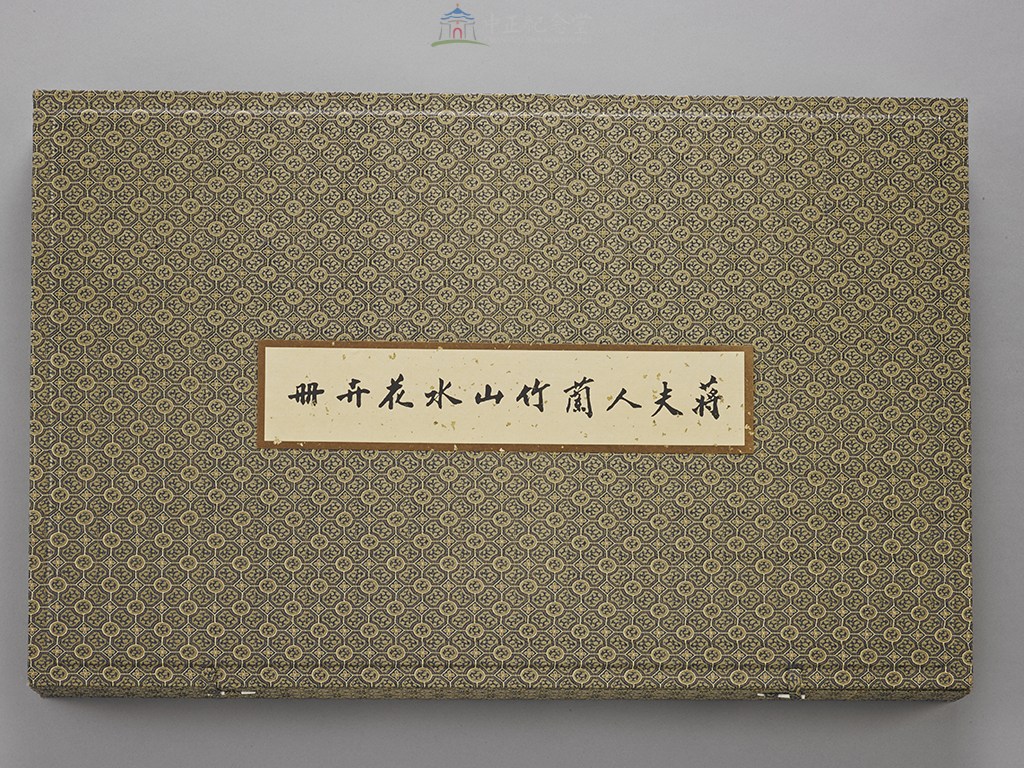 中正紀念堂
蔣夫人蘭竹山水花卉冊